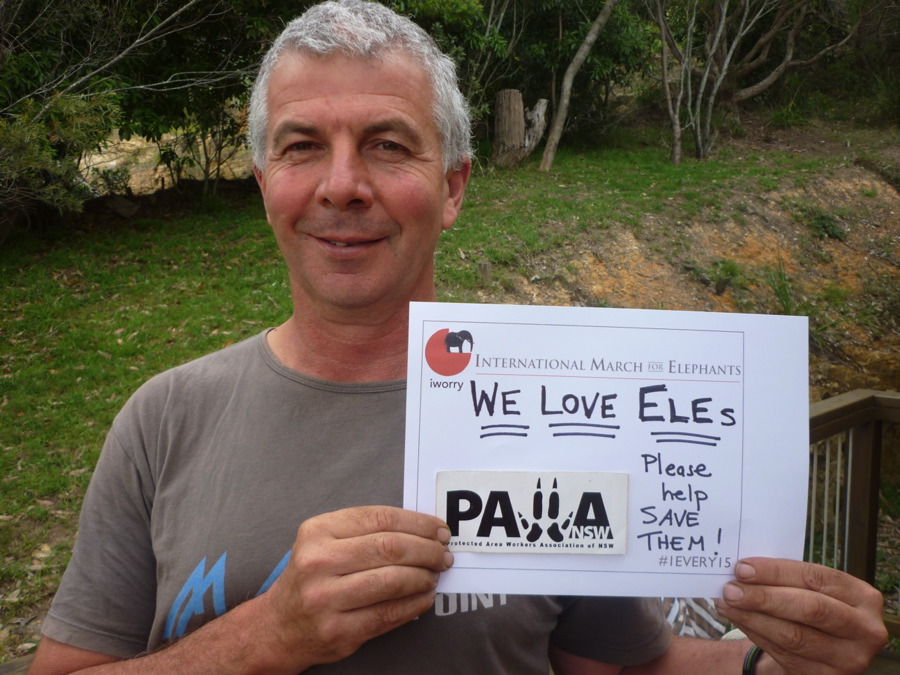 INTERNATIONAL MARCH FOR ELEPHANTS
iworry
WE LOVE ELEs
Please
help
SAVE
THEM!
PAWA
NSW
Protected Area Workers Association of NSW
#1EVERY15
POINT